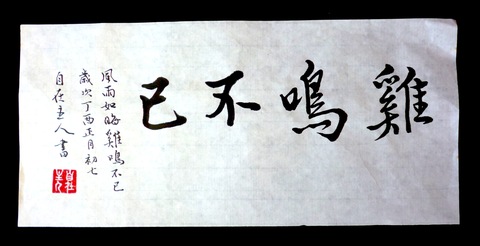 雞鳴不已
風雨如晦雞鳴不已
歲次丁酉正月初七
自在主人書